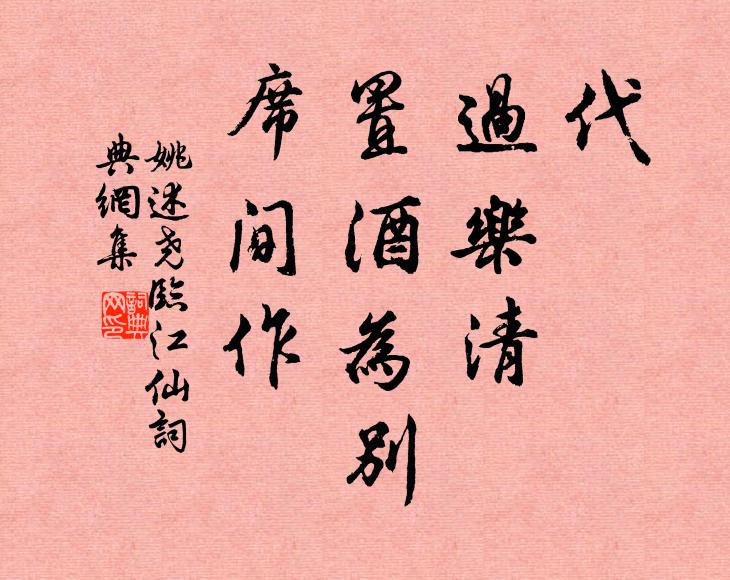 代
過樂清
置酒為別
席間作
姚述堯臨江仙詞
典網集
詞典網印